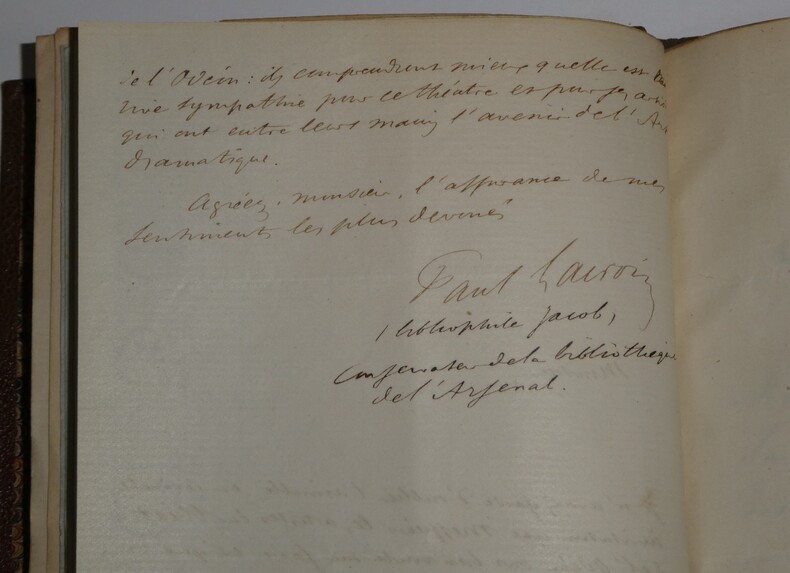 de l'Odéon : ils comprendront mieux quelle est
vive sympathie pour ce théâtre et pour ses
qui ont entre leurs mains l'avenir de l'Art
dramatique.
Agréez, monsieur, l'assurance de mes
sentiments les plus dévoués
Paul Lacroix
(bibliophile Jacob,
Conservateur de la bibliothèque
de l'Arsenal.